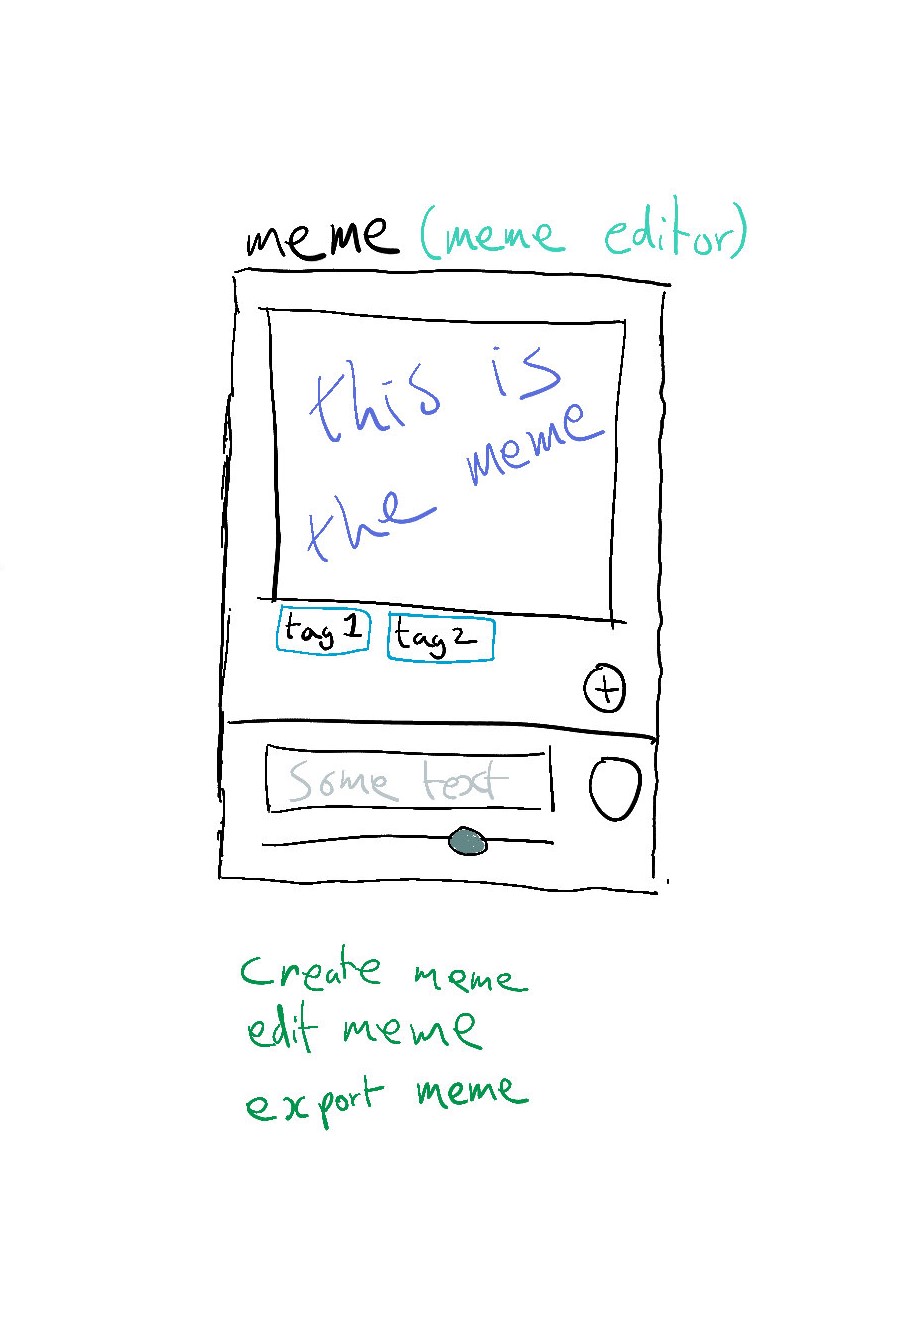 meme (meme editor)
this is
the meme
tag 1 tag 2
+
Some text
Create meme
edit meme
export meme